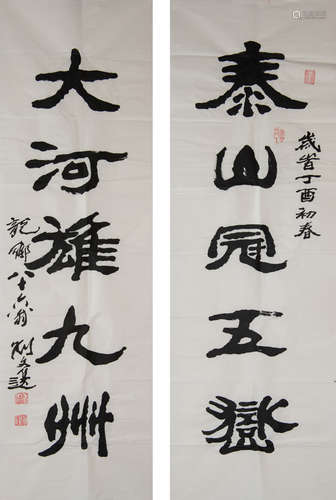 泰山冠五嶽
歲首丁酉初春
大河雄九州
龍鄉八十六翁劉文選